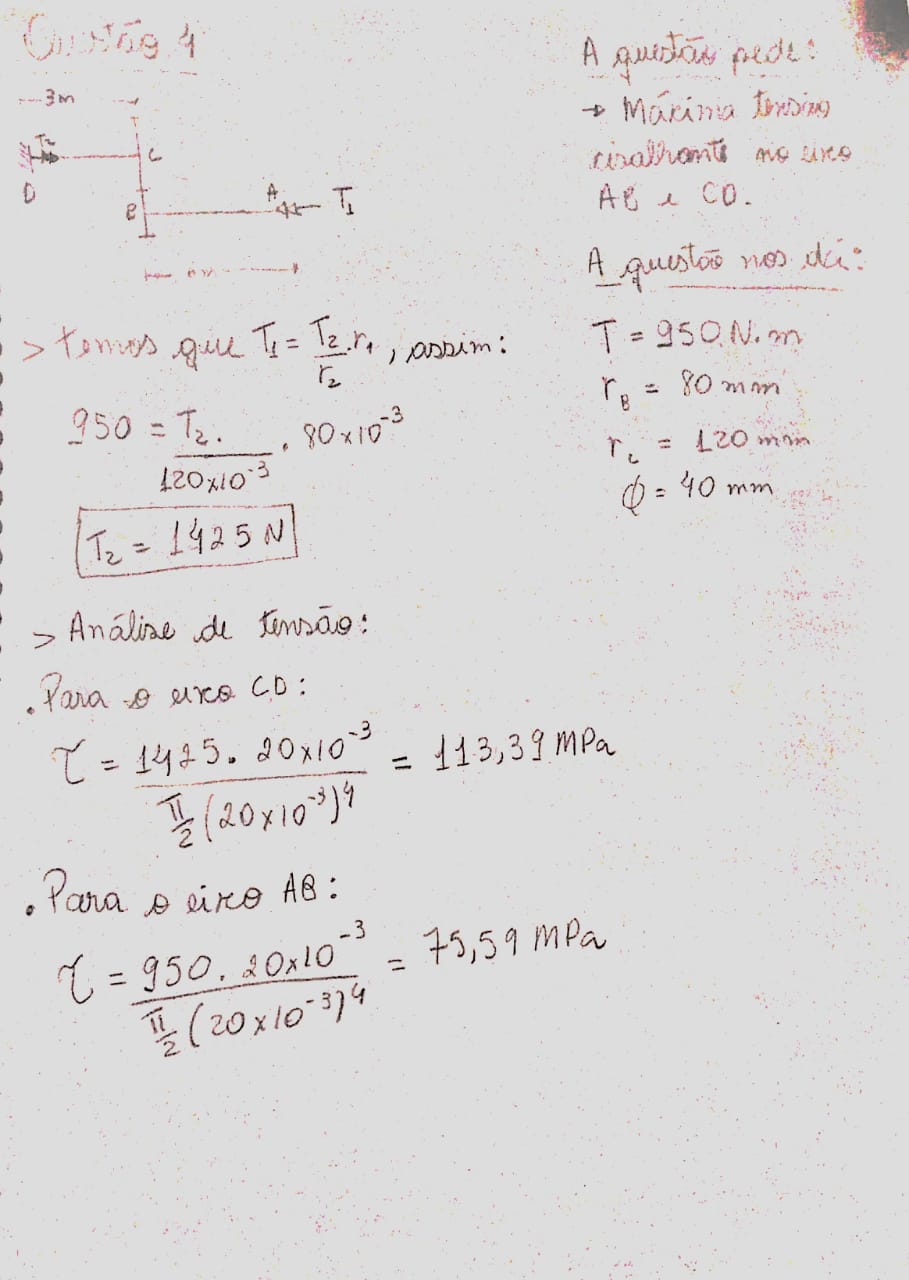 Questão 4
3m
T₂
C
D
B
A
T₁
m
A questão pede:
→ Máxima tensão
cisalhante no eixo
AB e CD.
A questão nos dá:
T = 950 N.m
r_B = 80 mm
r_c = 120 mm
ϕ = 40 mm
> temos que T₁ = T₂/r₂ . r₁, assim:
950 = T₂/120x10⁻³ . 80x10⁻³
T₂ = 1425 N
> Análise de tensão:
. Para o eixo CD:
τ = 1425. 20x10⁻³ / π/2 (20x10⁻³)⁴ = 113,39 MPa
. Para o eixo AB:
τ = 950. 20x10⁻³ / π/2 (20x10⁻³)⁴ = 75,59 MPa